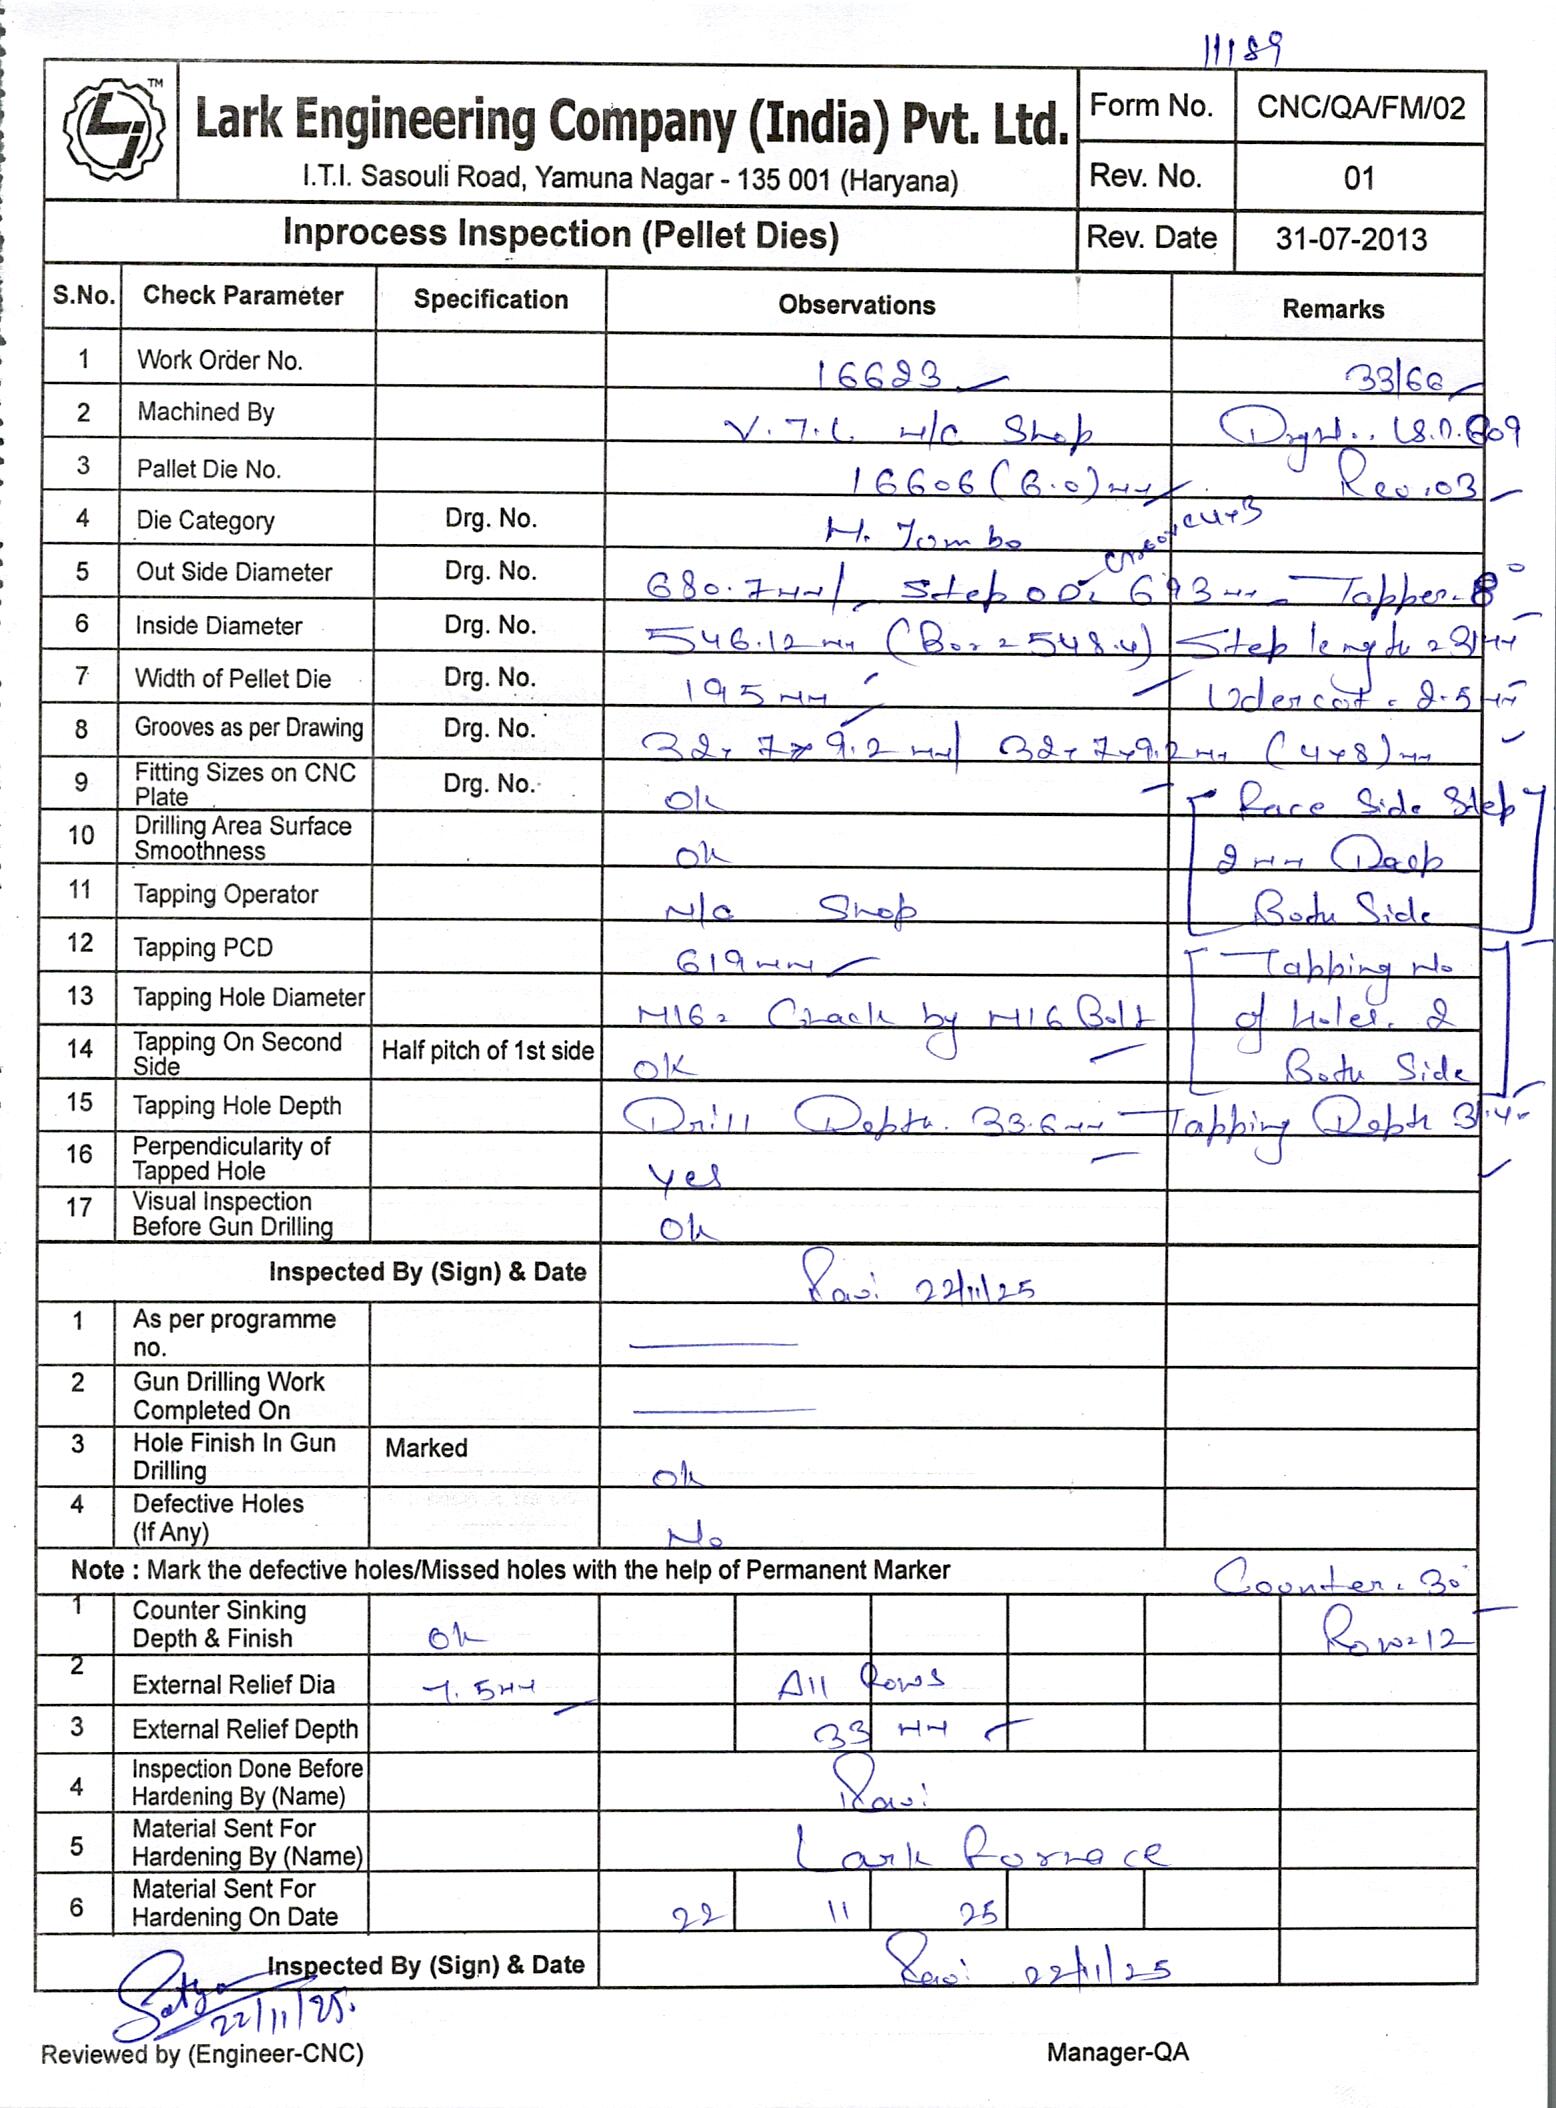 11189
TM
Lark Engineering Company (India) Pvt. Ltd.
I.T.I. Sasouli Road, Yamuna Nagar - 135 001 (Haryana)
Form No. CNC/QA/FM/02
Rev. No. 01
Inprocess Inspection (Pellet Dies) Rev. Date 31-07-2013
S.No. Check Parameter Specification Observations Remarks
1 Work Order No. 16623 33/66
2 Machined By V.T.L M/C Shop
3 Pallet Die No. 16606 (6.0)mm Rev.03
4 Die Category Drg. No. H. Jumbo
5 Out Side Diameter Drg. No. 680.7mm/ Step OD. 693mm Tapper.8°
6 Inside Diameter Drg. No. 546.12mm (Bor=548.4) Step length
7 Width of Pellet Die Drg. No. 195mm Udercut. 2.5mm
8 Grooves as per Drawing Drg. No. 7x9.2mm/ 7x9.2mm (4x8)mm
9 Fitting Sizes on CNC Plate Drg. No. Ok Face Side Step
10 Drilling Area Surface Smoothness Ok 2mm Deep
11 Tapping Operator M/C Shop Both Side
12 Tapping PCD 619mm Tapping No
13 Tapping Hole Diameter M16= Check by M16 Bolt of holes. 2
14 Tapping On Second Side Half pitch of 1st side OK Both Side
15 Tapping Hole Depth Drill Depth. 33.6mm Tapping Depth
16 Perpendicularity of Tapped Hole Yes
17 Visual Inspection Before Gun Drilling Ok
Inspected By (Sign) & Date Ravi 22/11/25
1 As per programme no.
2 Gun Drilling Work Completed On
3 Hole Finish In Gun Drilling Marked Ok
4 Defective Holes (If Any) No
Note : Mark the defective holes/Missed holes with the help of Permanent Marker Counter. 30°
1 Counter Sinking Depth & Finish Ok Row=12
2 External Relief Dia 7.5mm All Rows
3 External Relief Depth 33 mm
4 Inspection Done Before Hardening By (Name) Ravi
5 Material Sent For Hardening By (Name) Lark Fornace
6 Material Sent For Hardening On Date 22 11 25
Inspected By (Sign) & Date Ravi 22/11/25
Satya
22/11/25.
Reviewed by (Engineer-CNC) Manager-QA